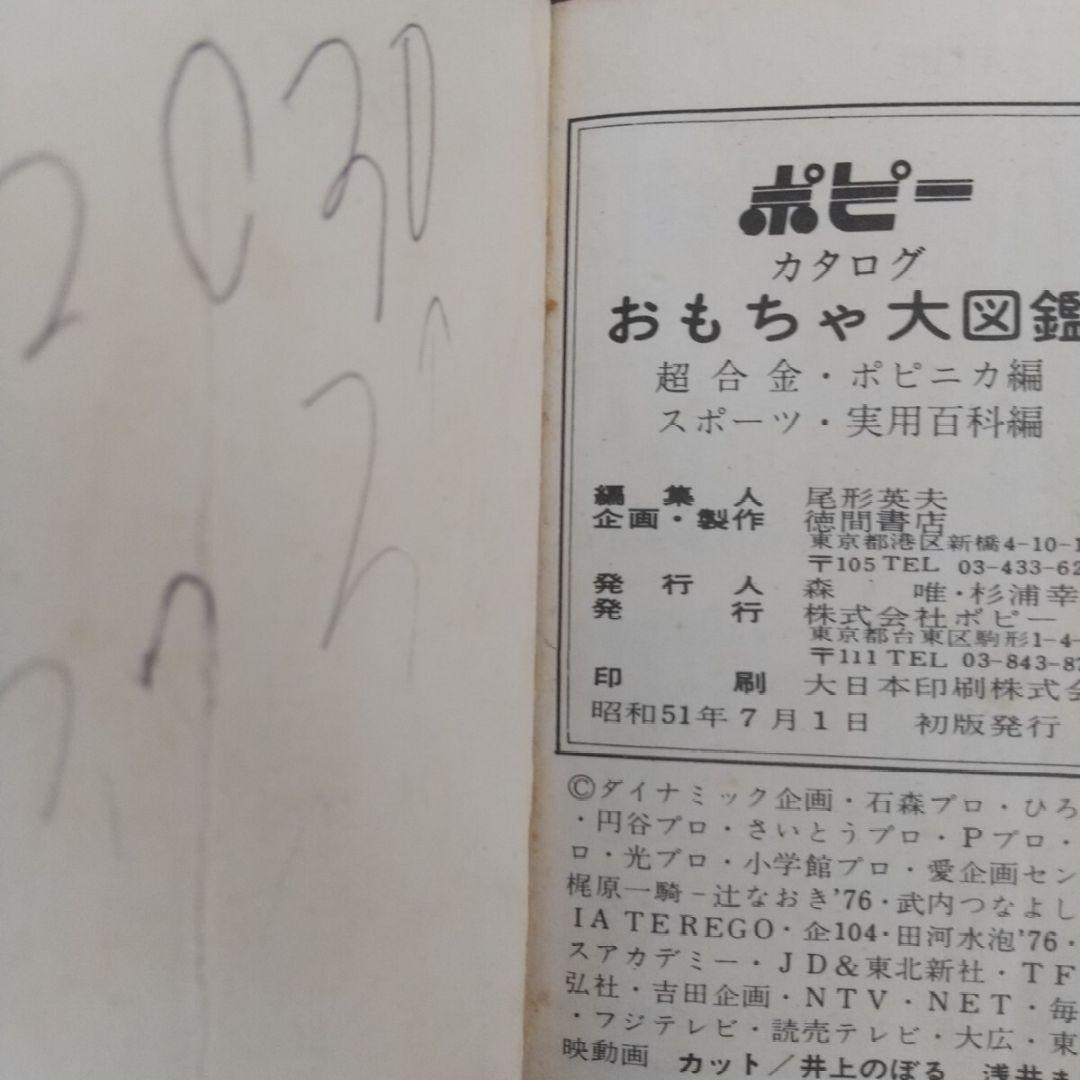 2030
ポピー
カタログ
おもちゃ大図鑑
超合金・ポピニカ編
スポーツ・実用百科編
編集人 尾形英夫
企画・製作 徳間書店
東京都港区新橋4-10-1
〒105 TEL 03-433-62
発行人 森 唯・杉浦幸
発行 株式会社ポピー
東京都台東区駒形1-4-
〒111 TEL 03-843-87
印刷 大日本印刷株式会
昭和51年7月1日 初版発行
©ダイナミック企画・石森プロ・ひろ
・円谷プロ・さいとうプロ・Pプロ・
ロ・光プロ・小学館プロ・愛企画セン
梶原一騎－辻なおき'76・武内つなよし
IA TEREGO・企104・田河水泡'76・
スアカデミー・JD&東北新社・TF
弘社・吉田企画・NTV・NET・毎
・フジテレビ・読売テレビ・大広・東
映動画 カット／井上のぼる 浅井ま